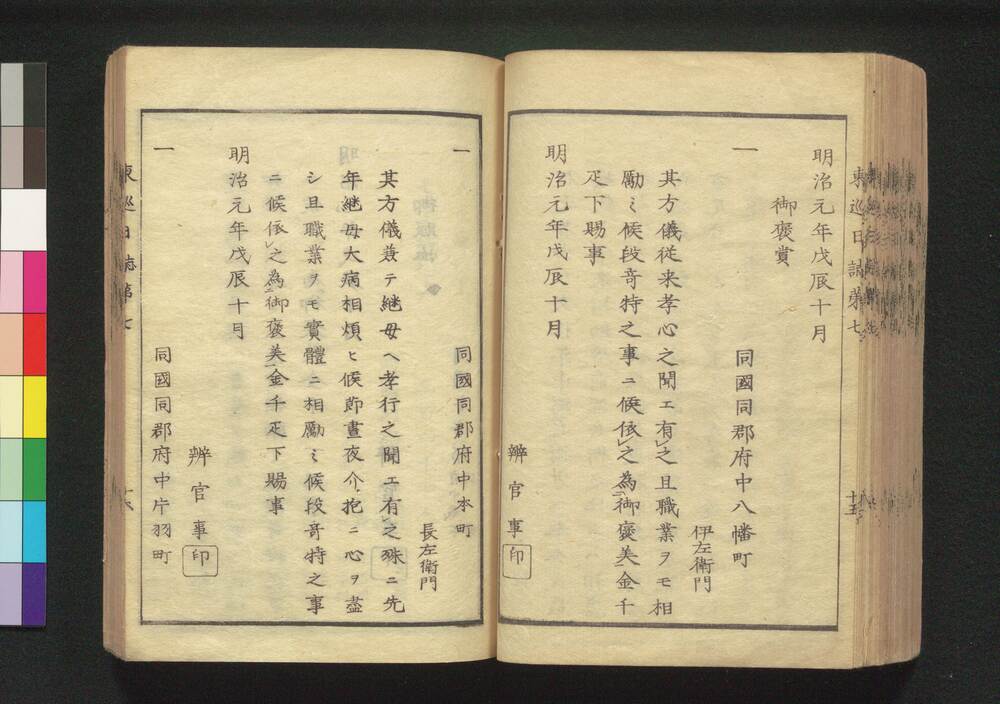 東巡日誌第七
十五
明治元年戊辰十月
御褒賞
一 同國同郡府中八幡町
伊左衛門
其方儀従来孝心之聞エ有レ之且職業ヲモ相
勵ミ候段奇特之事ニ候依レ之為二御褒美一金千
疋下賜事
明治元年戊辰十月
辨官事 印
一 同國同郡府中本町
長左衛門
其方儀兼テ継母ヘ孝行之聞エ有レ之殊ニ先
年継母大病相煩ヒ候節晝夜介抱ニ心ヲ盡
シ且職業ヲモ實體ニ相勵ミ候段奇特之事
ニ候依レ之為二御褒美一金千疋下賜事
明治元年戊辰十月
辨官事 印
一 同國同郡府中片羽町
東巡日誌第七